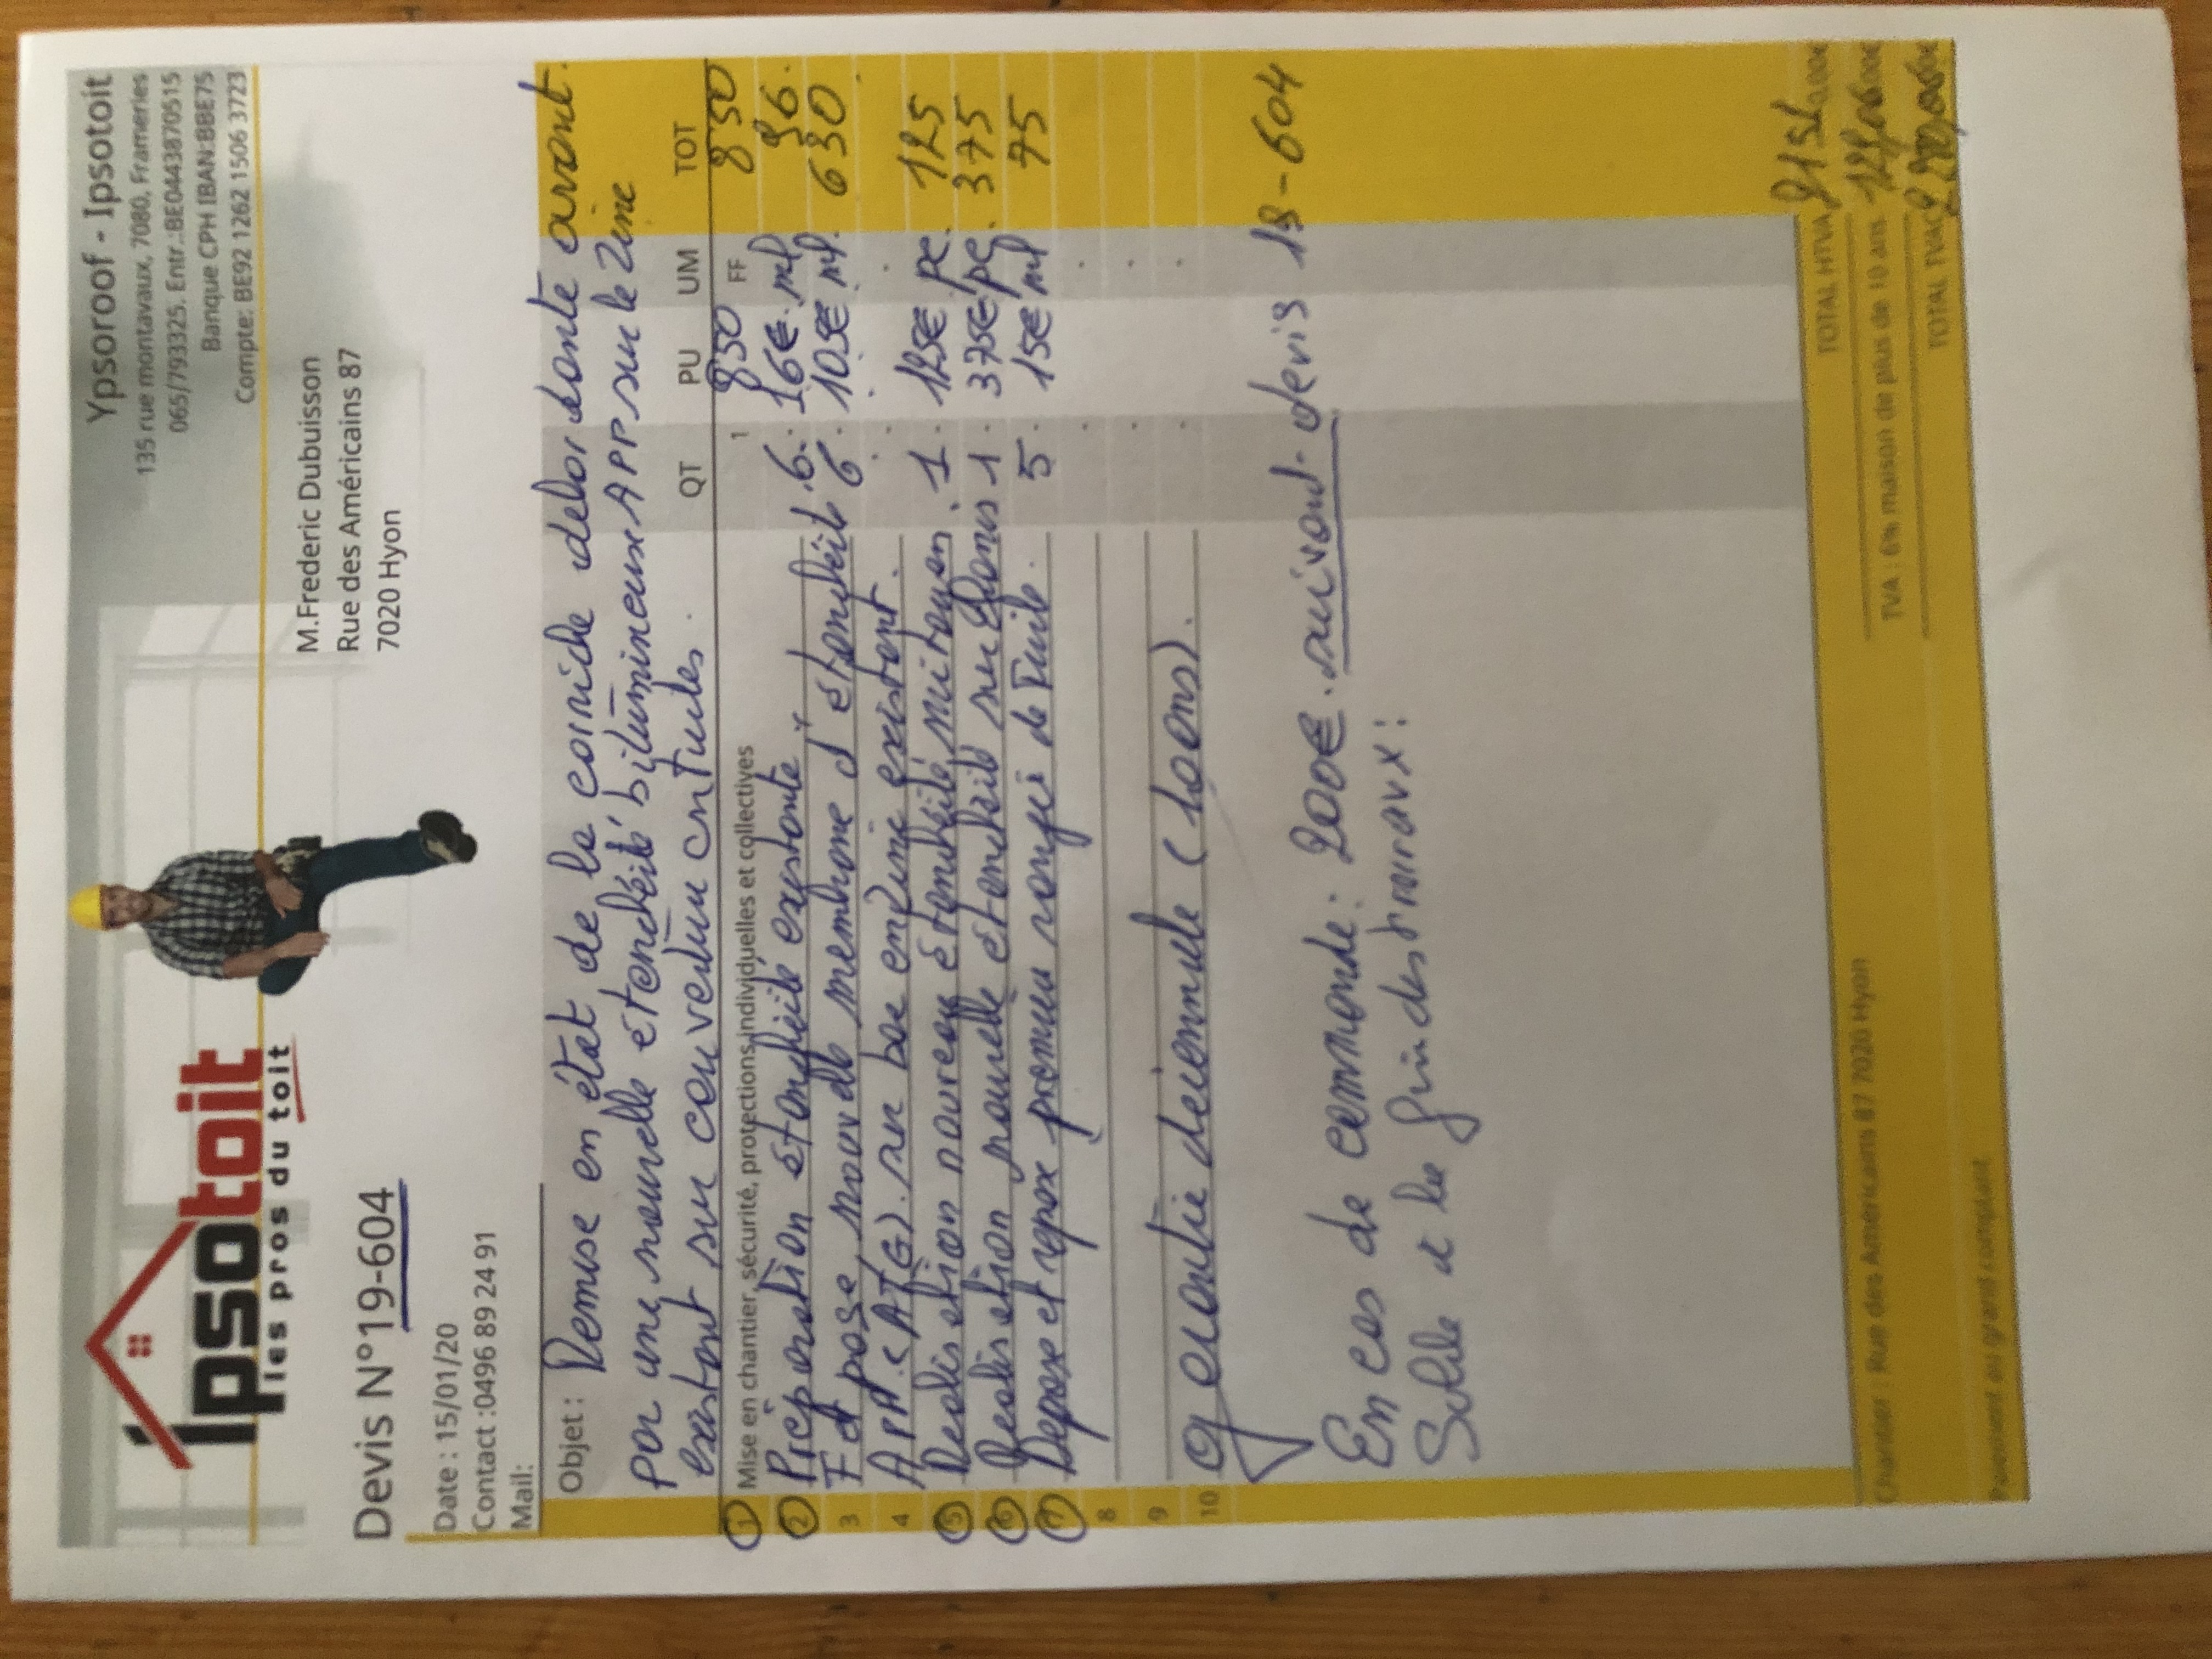 Ypsoroof - Ipsotoit
135 rue montavaux, 7080, Frameries
065/793325. Entr.:BE04438770515
Banque CPH IBAN:BBE75
Compte: BE92 1262 1506 3723
Ipsotoit
les pros du toit
Devis N°19-604
Date : 15/01/20
Contact :0496 89 24 91
Mail:
M.Frederic Dubuisson
Rue des Américains 87
7020 Hyon
Objet : Remise en état de la corniche debordante avant.
par une nouvelle étanchéité bitumineuse APP sur le Zinc
existant sur couverture en tuiles.
QT PU UM TOT
1 Mise en chantier, sécurité, protections,individuelles et collectives 1 850 FF 850
2 Préparation étanchéité existante 6 16€ ml 96
3 F et pose, nouvelle membrane d'étanchéité 6 105€ ml 630
4 APP. (AT G). sur bac en zinc existant.
5 Realisation nouveau étanchéité mitoyen 1 125€ pc 125
6 Realisation nouvelle étanchéité sur 1 375€ pc 375
7 Depose et repose premier rangée de Tuile. 5 15€ ml 75
8
9
10 garantie décennale (10ans).
En cas de commande: 200€. suivant devis 19-604
Solde à la fin des travaux:
TOTAL HTVA 2151
TVA : 6% maison de plus de 10 ans
TOTAL TVAC
Chantier : Rue des Américains 87 7020 Hyon
Paiement au grand comptant